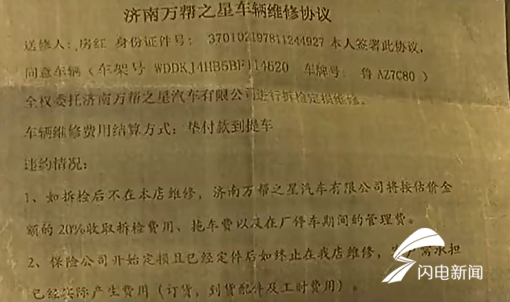 济南万帮之星车辆维修协议
送修人：房红 身份证件号：370102197811244927 本人签署此协议，
同意车辆（车架号 WDDKJ4HB5BF114620 车牌号：鲁 AZ7C80）
全权委托济南万帮之星汽车有限公司进行拆检定损维修。
车辆维修费用结算方式：垫付款到提车
违约情况：
1、如拆检后不在本店维修，济南万帮之星汽车有限公司将按估价金
额的 20%收取拆检费用、拖车费以及在厂停车期间的管理费。
2、保险公司开始定损且已经定件后如终止在我店维修，需承担
已经实际产生费用（订货，到货配件及工时费用）．
闪电新闻